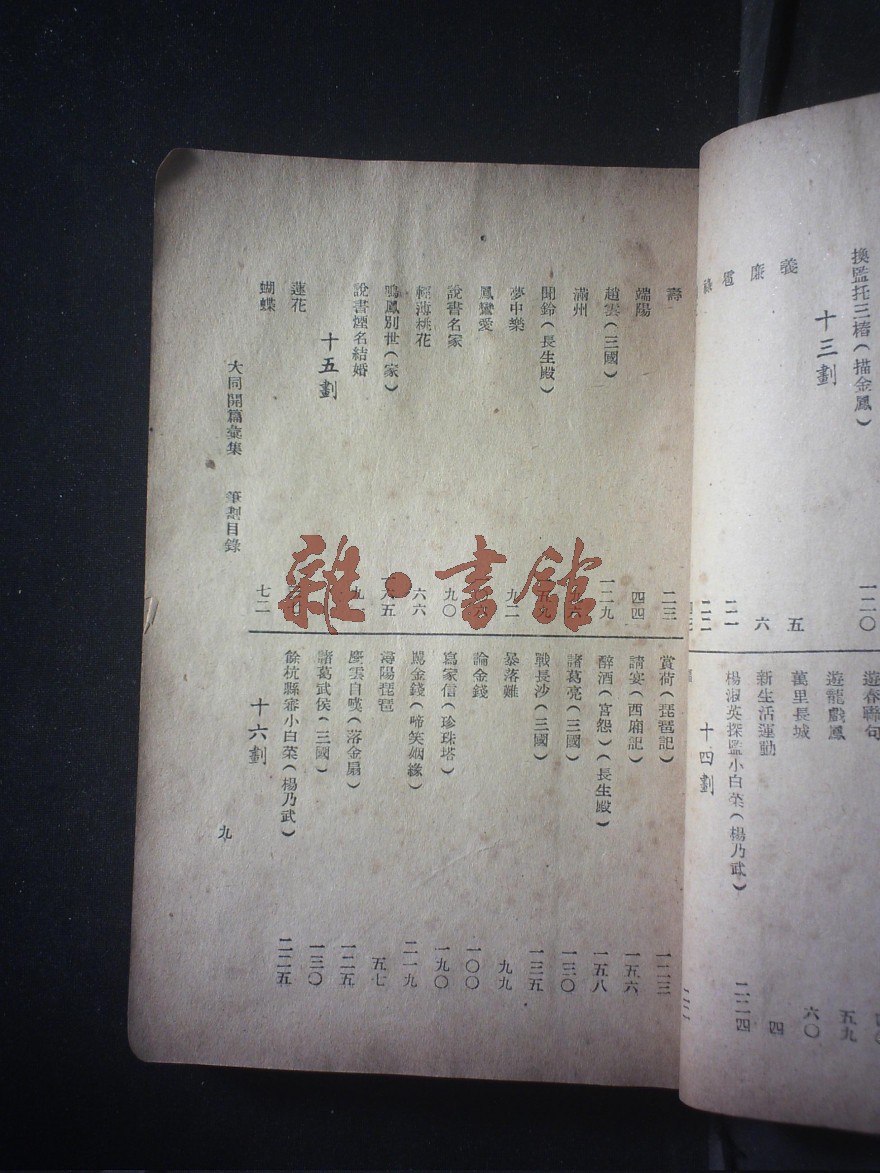 換監托三樁(描金鳳) 一二〇
十三劃
義 五
廉 六
二一
二二
遊春聯句
遊龍戲鳳 五九
萬里長城 六〇
新生活運動 四
楊淑英探監小白菜(楊乃武) 二二四
十四劃
壽 二三
端陽 四四
趙雲(三國) 一二九
滿州
聞鈴(長生殿)
夢中樂 九二
鳳鸞愛
說書名家 九〇
海桃花 六六
鳴鳳別世(家)
說書煙名結婚
十五劃
蓮花
蝴蝶 七二
賞荷(琵琶記) 一二三
請宴(西廂記) 一五六
醉酒(宮怨)(長生殿) 一五八
諸葛亮(三國) 一三〇
戰長沙(三國) 一三五
暴落難 九九
論金錢 一〇〇
寫家信(珍珠塔) 一九〇
鳳金錢(啼笑姻緣) 二一九
潯陽琵琶 五七
慶雲自嘆(落金扇) 一二五
諸葛武侯(三國) 一三〇
餘杭縣審小白菜(楊乃武) 二二五
十六劃
大同開篇彙集 筆劃目錄
九
雜·書館